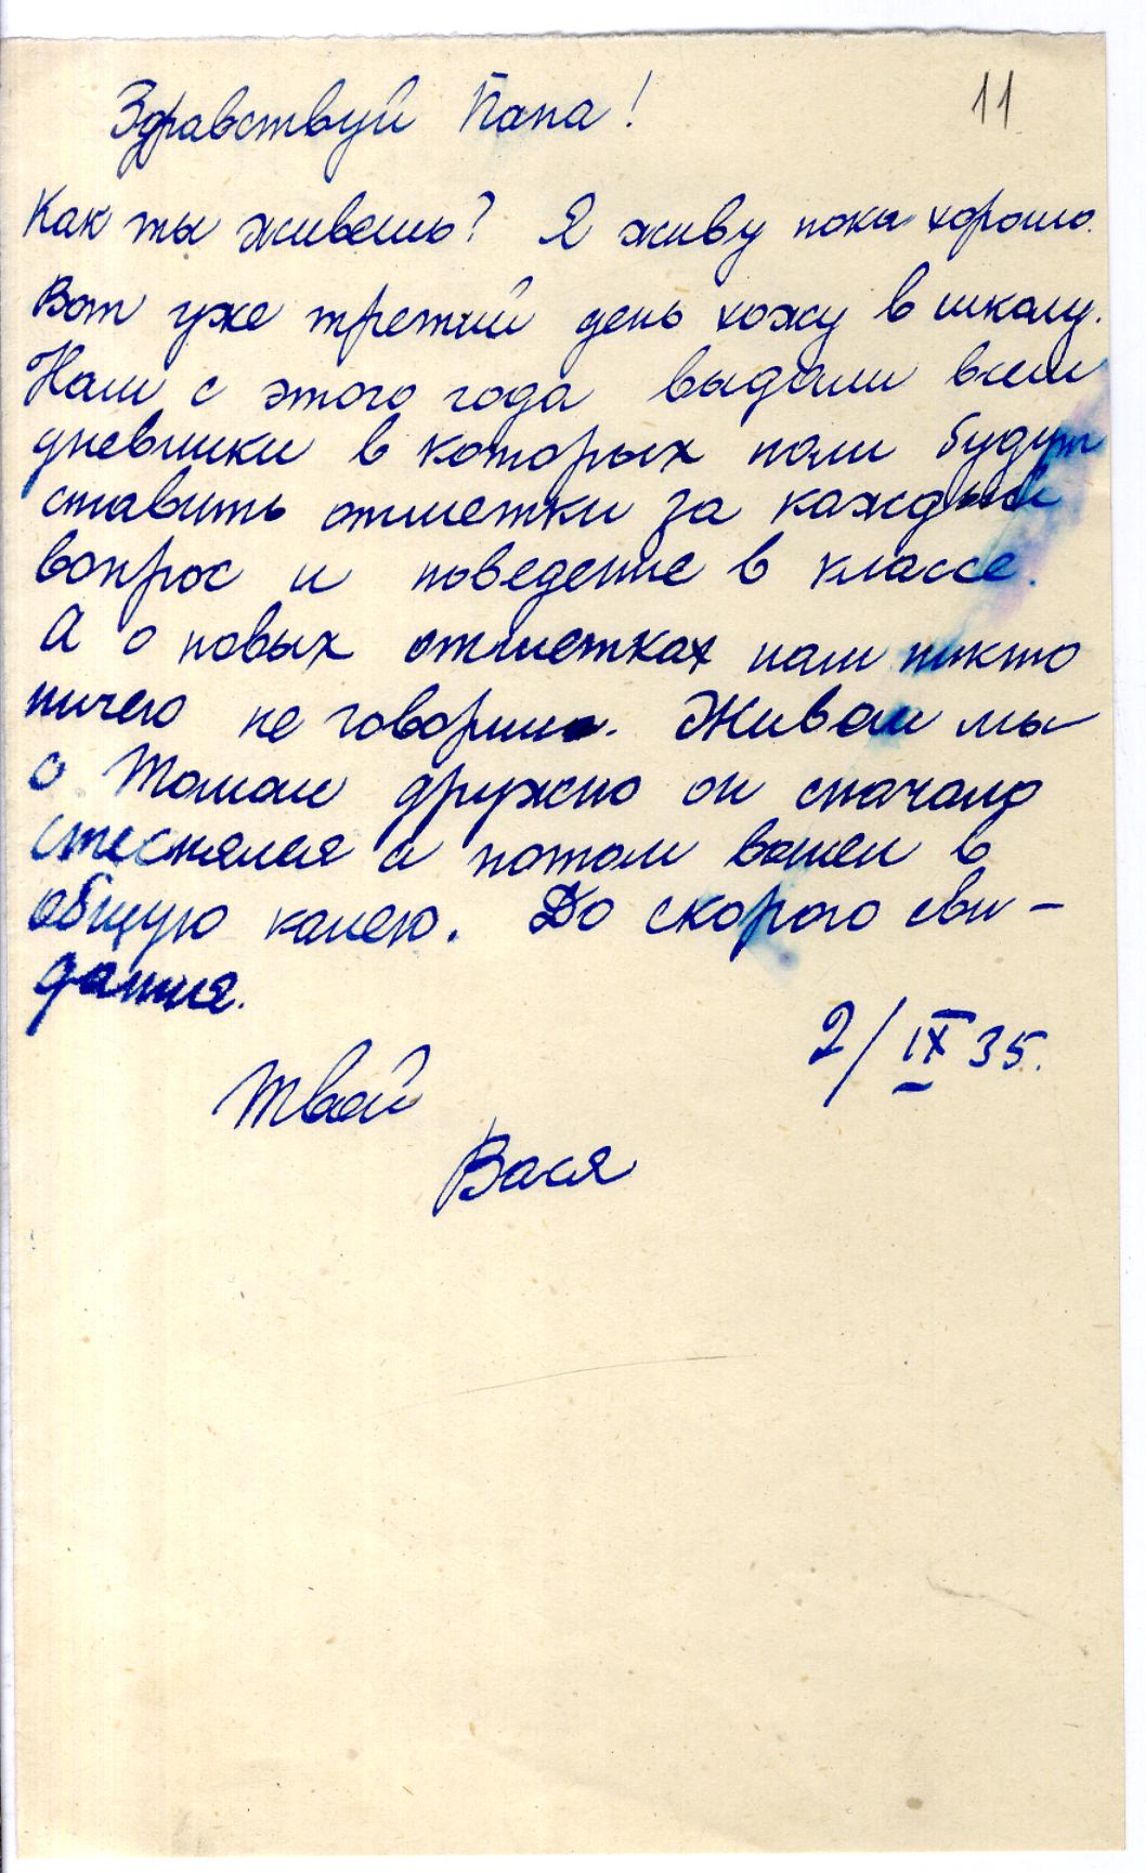 11
Здравствуй Папа!
Как ты живешь? Я живу пока хорошо.
Вот уже третий день хожу в школу.
Нам с этого года выдали всем
дневники в которых нам будут
ставить отметки за каждый
вопрос и поведение в классе.
А о новых отметках нам никто
ничего не говорили. Живем мы
с Томом дружно он сначало
стеснялся а потом вошел в
общую колею. До скорого сви-
дания.
2/IX 35.
Твой
Вася